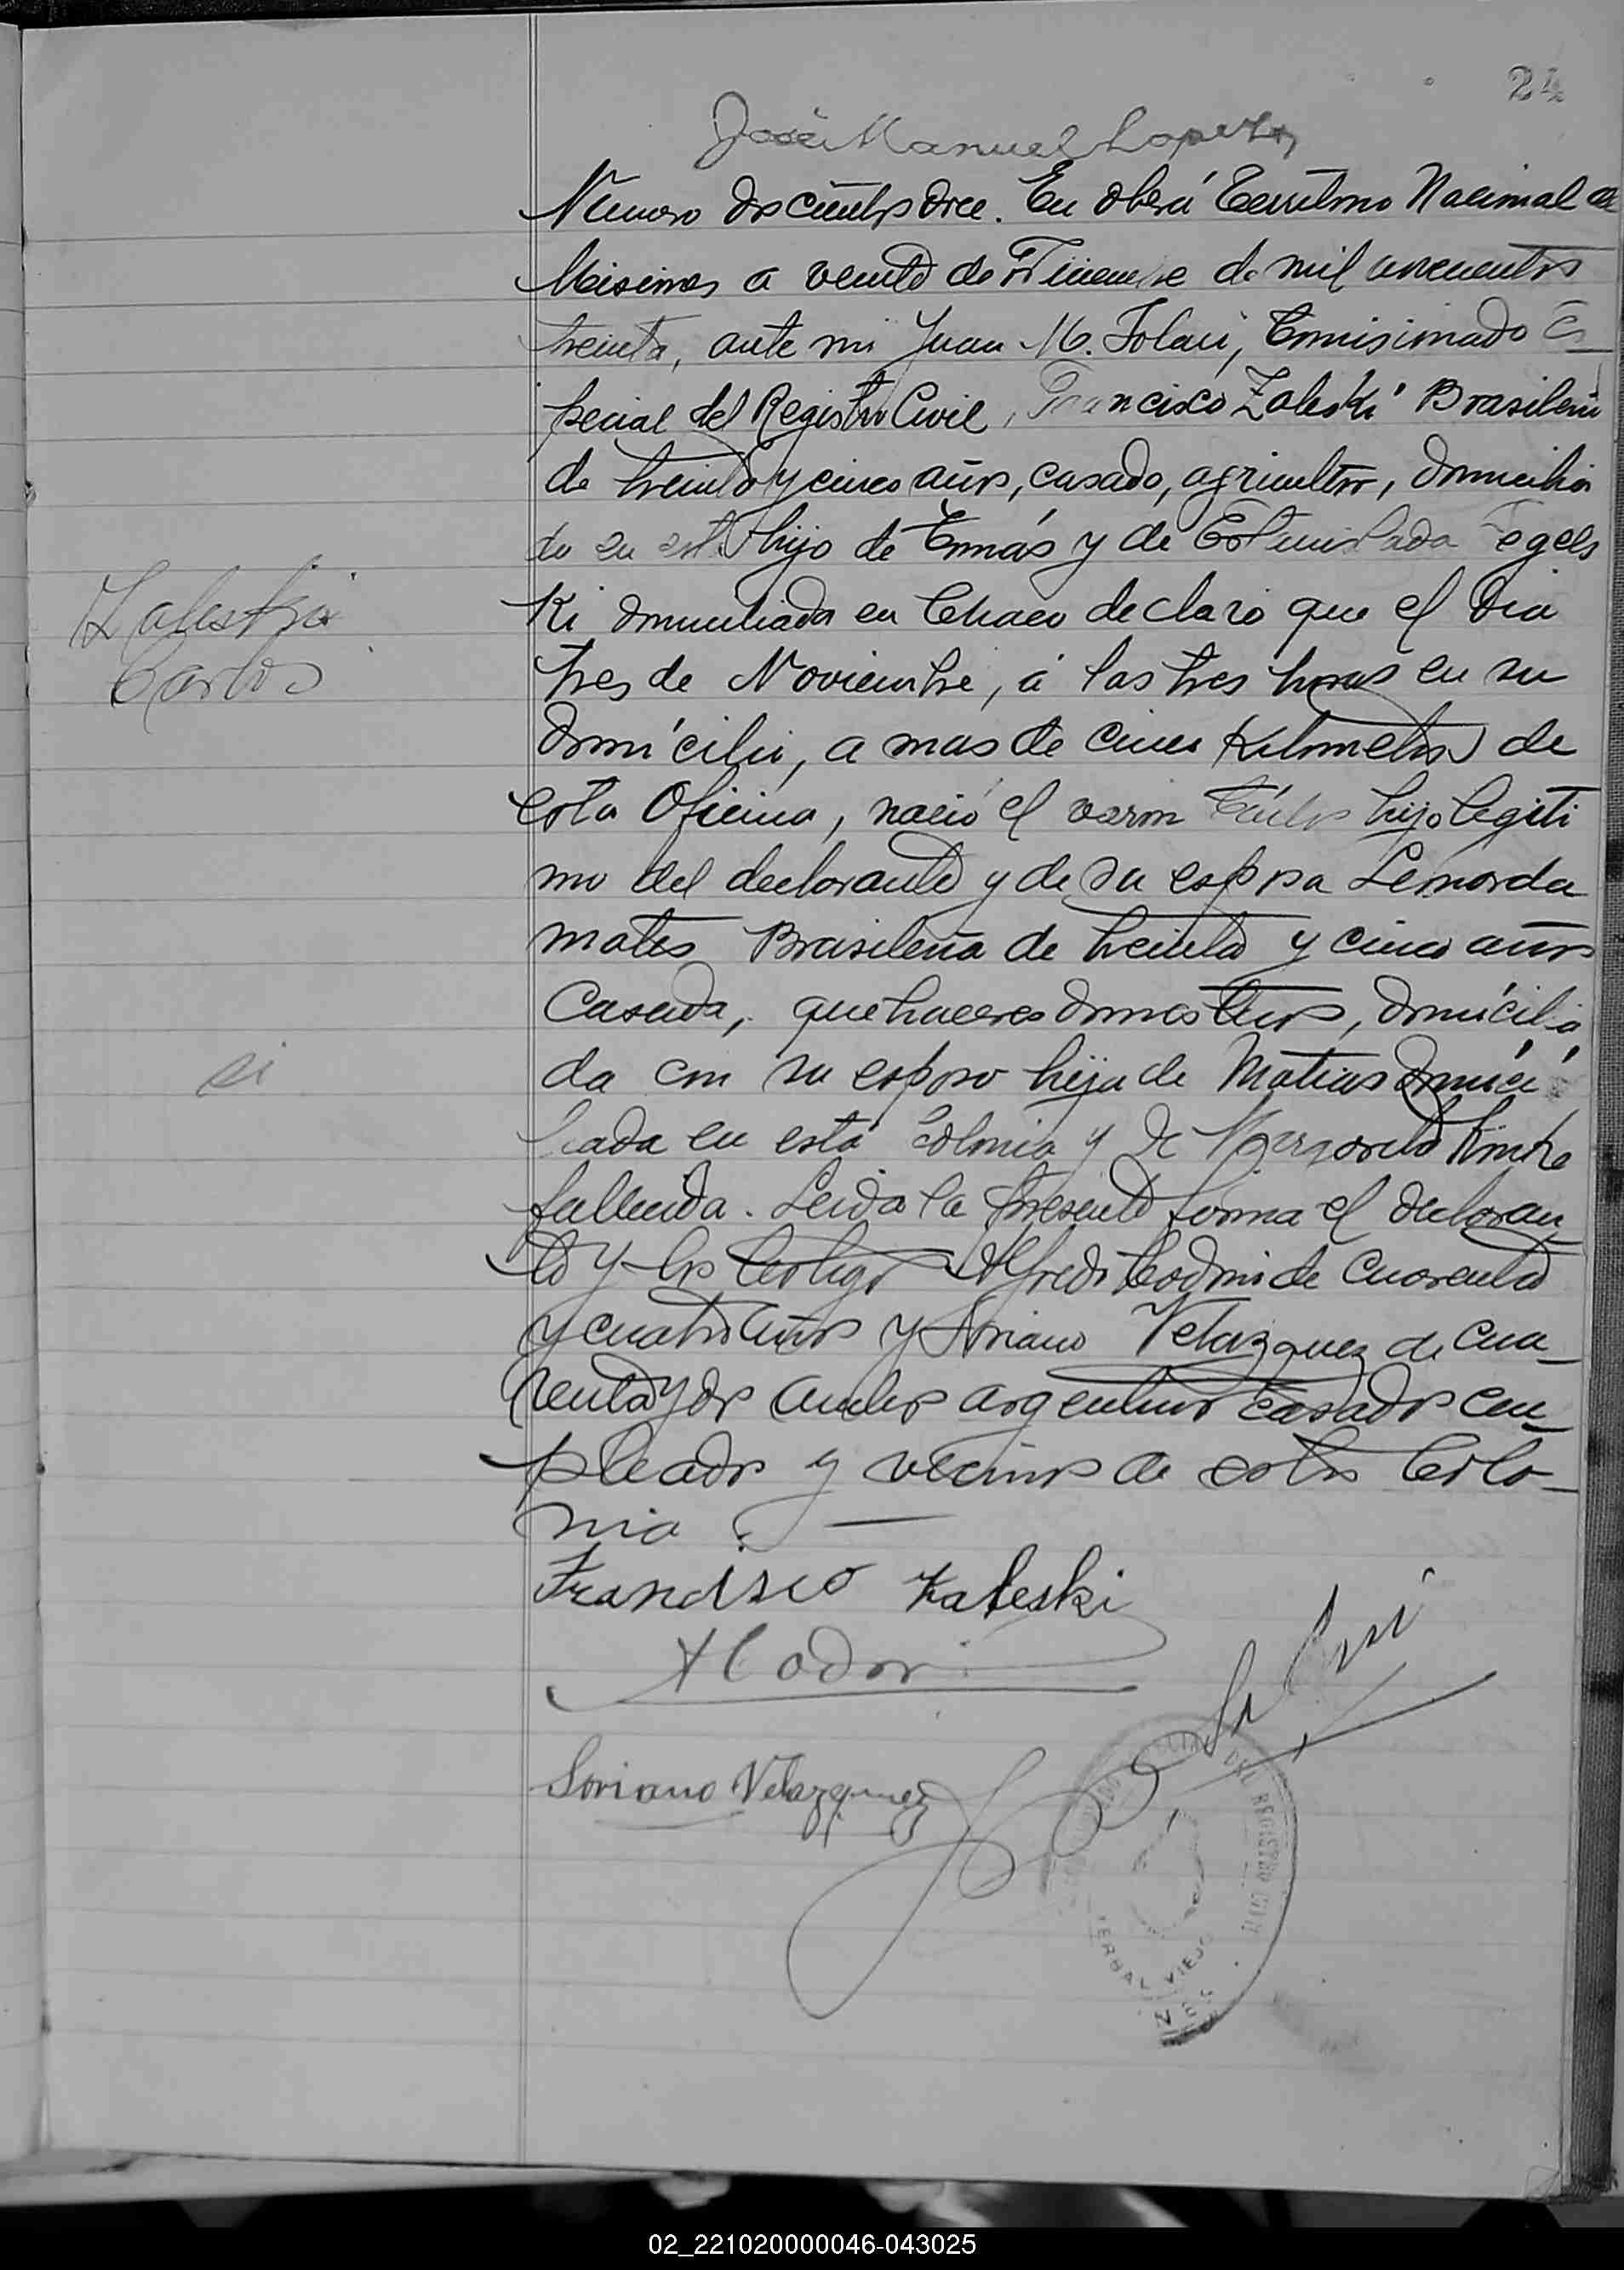 24
José Manuel Lopez
Numero doscientos doce. En Oberá Territorio Nacional de
Misiones a veinte de de mil novecientos
treinta, ante mi Juan M. Solari, Comisionado Es
pecial del Registro Civil, Francisco Zaleski Brasileño
de treinta y cinco años, casado, agricultor, domicilia
do en esta hijo de Tomás y de Estanislada Fegels
Ki domiciliada en Chaco declaro que el dia
tres de Noviembre, á las tres horas en su
domicilio, a mas de cinco Kilometros de
esta Oficina, nació el varon Carlos hijo legiti
mo del declarante y de su esposa Leonarda
Zaleskja
Carlos
mates Brasileña de treinta y cinco años
Casada, quehaceres domesticos, domicilia
da con su esposo hija de Matias domici
si
liada en esta Colonia y de Margarita
fallecida. Leida la presente forma el declaran
te y los testigos Alfredo Codori de cuarenta
y cuatro años y Soriano Velazquez de cua-
renta y dos ambos argentinos casados em-
pleados y vecinos de esta Colo-
nia
Francisco Zaleski
A Codori
Soriano Velazquez
DEL REGISTRO CIVIL
YERBAL VIEJO
02_221020000046-043025